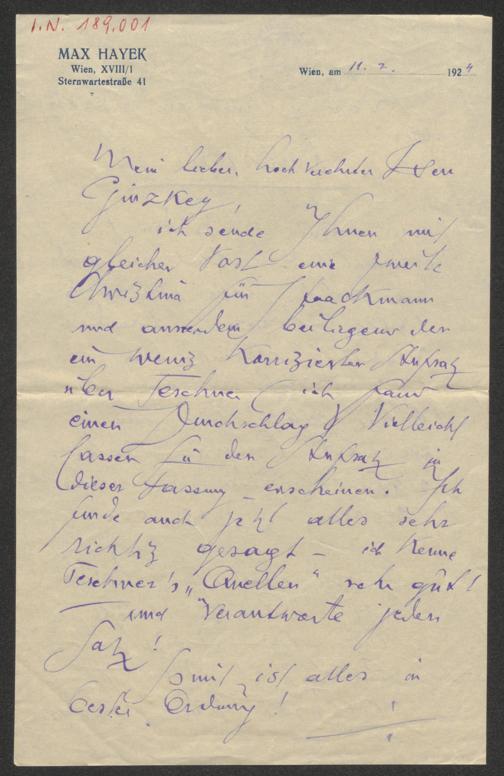 I.N. 189.001
MAX HAYEK
Wien, XVIII/1
Sternwartestraße 41
Wien, am 11. 2. 1924
Mein lieber, hochverehrter Herr
Ginzkey,
ich sende Ihnen mit
gleicher Post eine zweite
Christina für Staackmann
und ausserdem beiliegend den
ein wenig korrigierten Aufsatz
über Teschner (ich fand
einen Durchschlag) Vielleicht
lassen Sie den Aufsatz in
dieser Fassung erscheinen. Ich
finde auch jetzt alles sehr
richtig gesagt – ich kenne
Teschner's „Quellen" sehr gut!
und verantworte jeden
Satz!
Somit ist alles in
bester Ordnung!